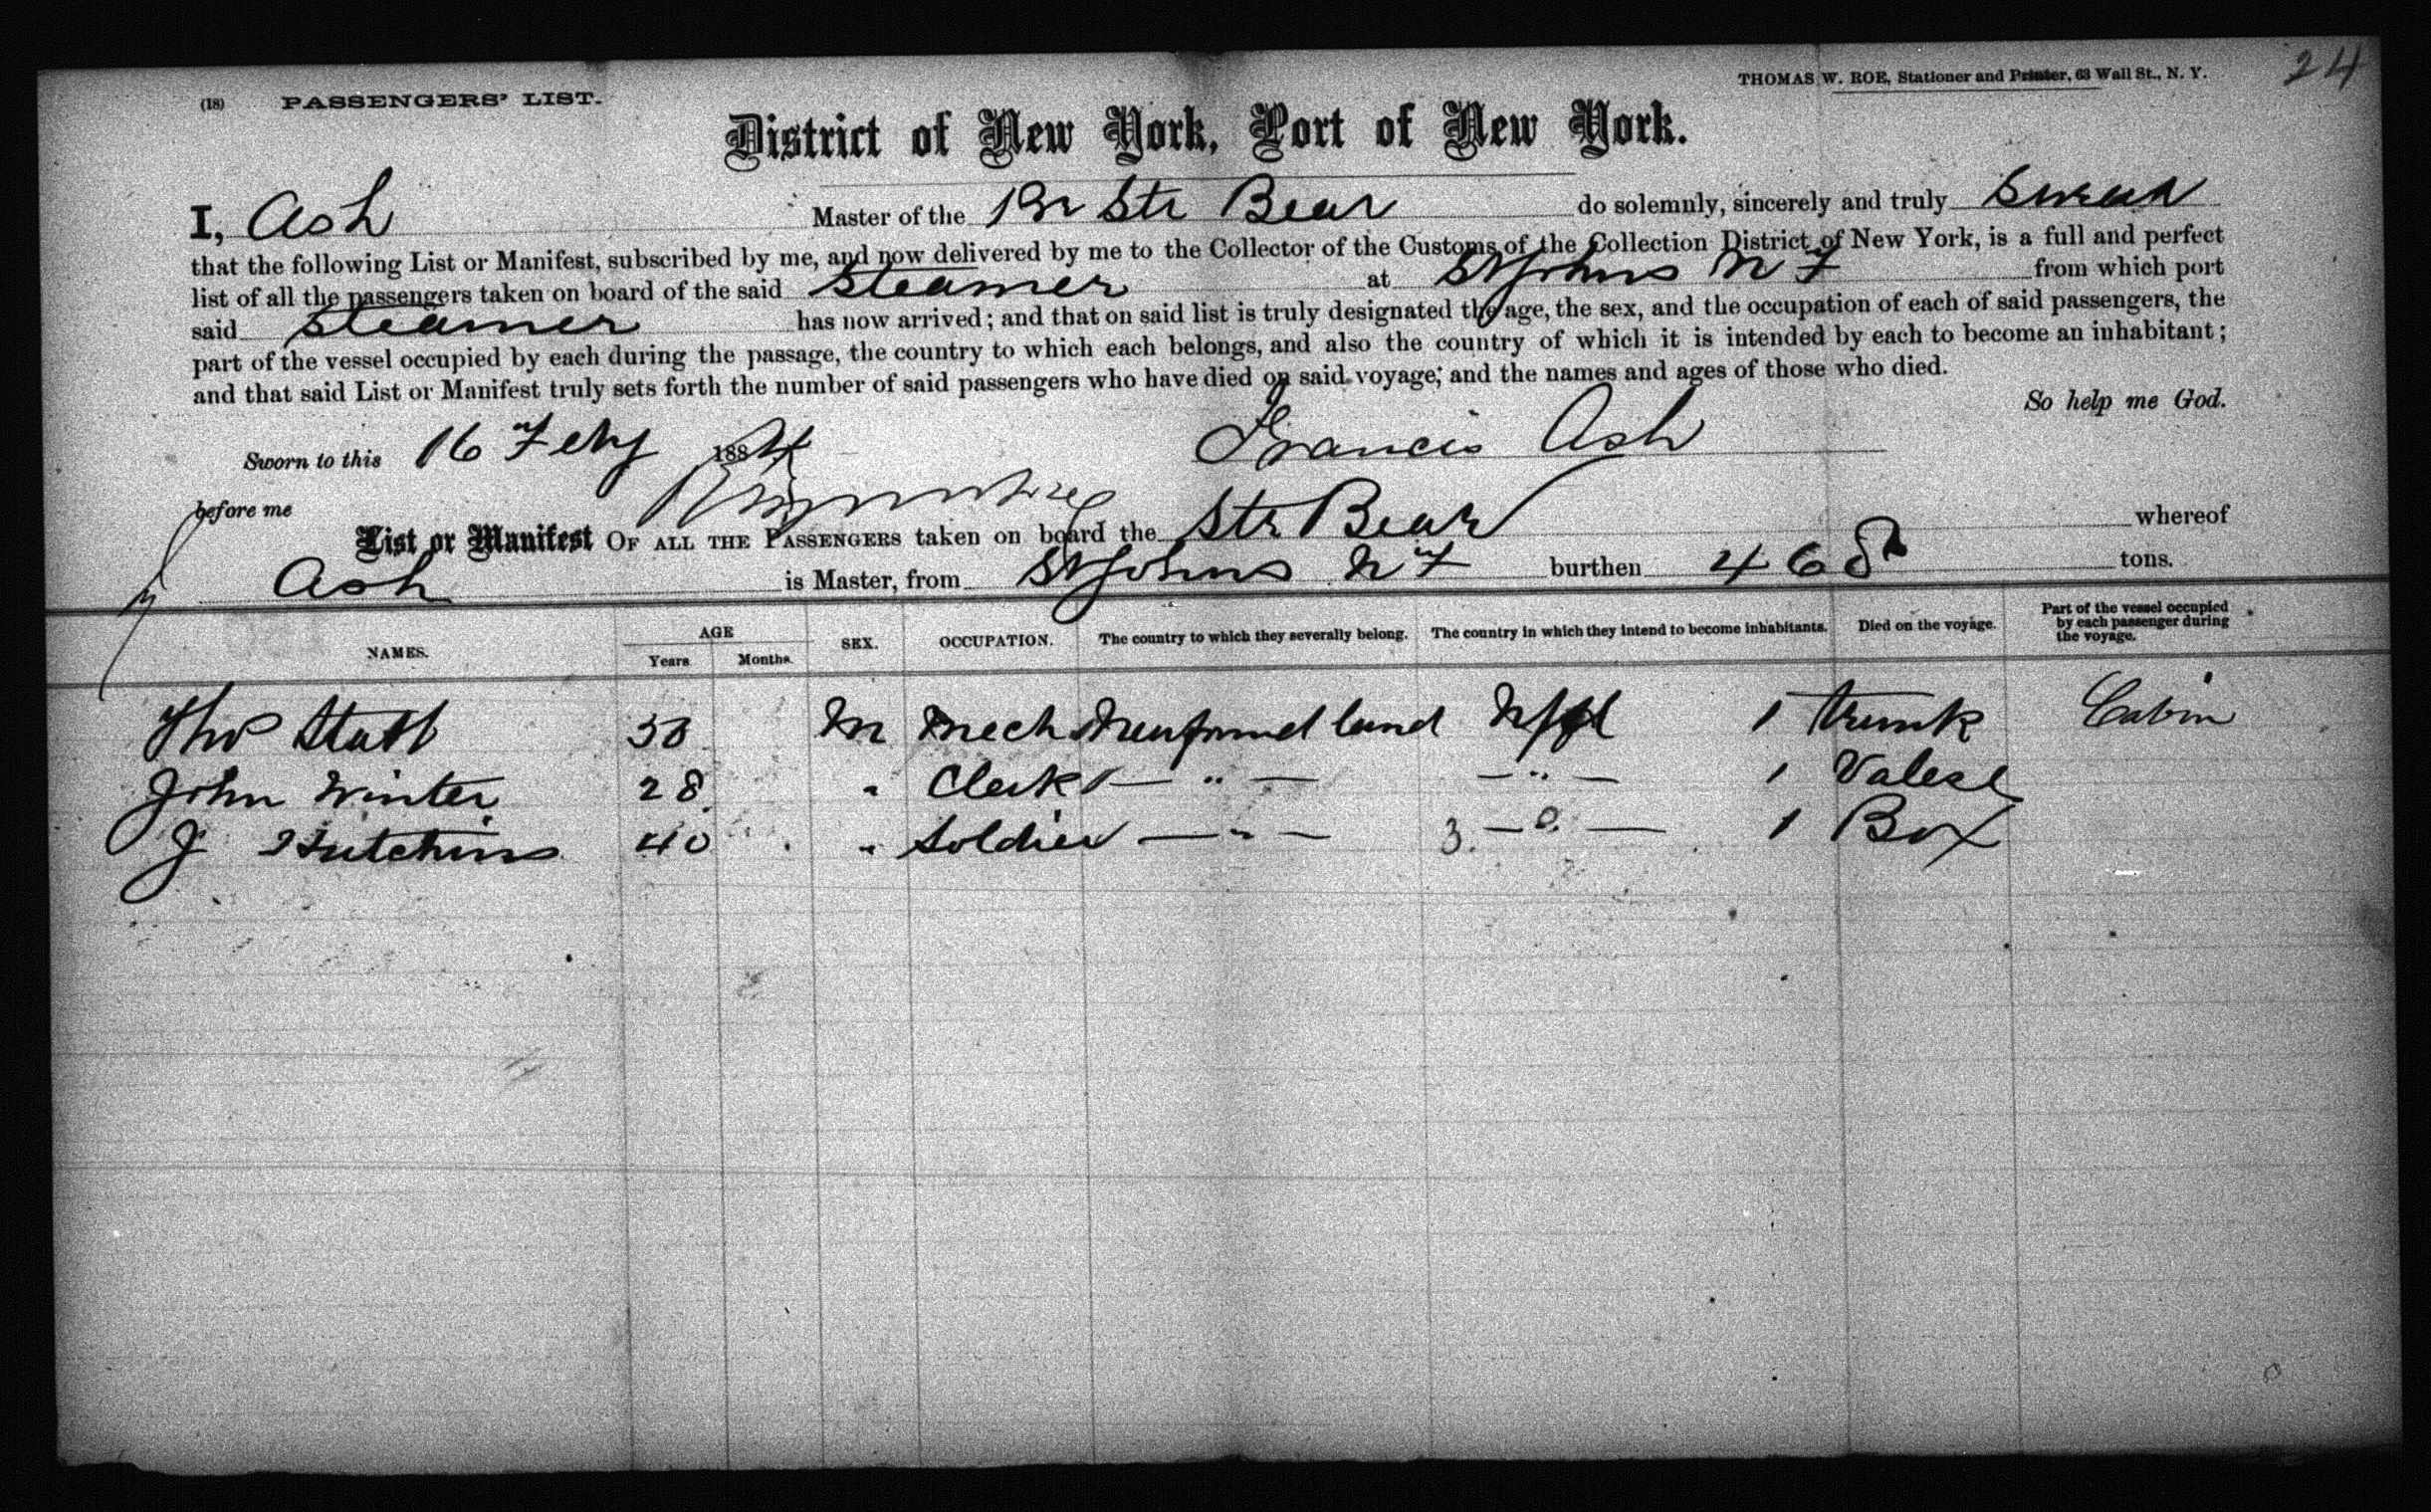 24
(18) PASSENGERS' LIST. THOMAS W. ROE, Stationer and Printer, 63 Wall St., N. Y.
District of New York, Port of New York.
I, Ash Master of the Br Str Bear do solemnly, sincerely and truly swear
that the following List or Manifest, subscribed by me, and now delivered by me to the Collector of the Customs of the Collection District of New York, is a full and perfect
list of all the passengers taken on board of the said Steamer at St Johns N F from which port
said Steamer has now arrived; and that on said list is truly designated the age, the sex, and the occupation of each of said passengers, the
part of the vessel occupied by each during the passage, the country to which each belongs, and also the country of which it is intended by each to become an inhabitant;
and that said List or Manifest truly sets forth the number of said passengers who have died on said voyage, and the names and ages of those who died.
So help me God.
Sworn to this 16 Feby 1884 Francis Ash
before me
List or Manifest OF ALL THE PASSENGERS taken on board the Str Bear whereof
Ash is Master, from St Johns N F burthen 468 tons.
NAMES. AGE Years Months. SEX. OCCUPATION. The country to which they severally belong. The country in which they intend to become inhabitants. Died on the voyage. Part of the vessel occupied by each passenger during the voyage.
Thos M Mech Newfoundland Nfld 1 trunk Cabin
John Winter 28 " Clerk — " — — " — 1 Valese
J Hutchins 40 " Soldier — " — 3. — " — 1 Box